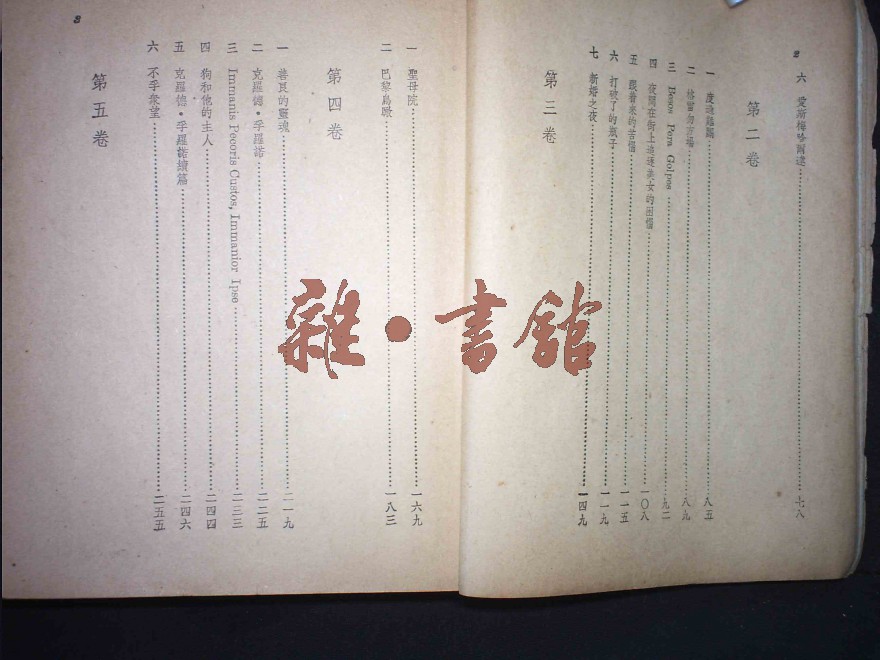 2
六 愛斯梅哈爾達……七八
第二卷
一 度過難關……八五
二 格雷勿廣場……八九
三 Besos Para Golpes……九二
四 夜間在街上追逐美女的困惱……一〇八
五 跟着來的苦惱……一一五
六 打破了的瓶子……一一九
七 新婚之夜……一四九
第三卷
3
一 聖母院……一六九
二 巴黎鳥瞰……一八三
第四卷
一 善良的靈魂……二一九
二 克羅德·孚羅諾……二二五
三 Immanis Pecoris Custos, Immanior Ipse……二三三
四 狗和他的主人……二四四
五 克羅德·孚羅諾續篇……二四六
六 不孚衆望……二五五
第五卷
雜·書館